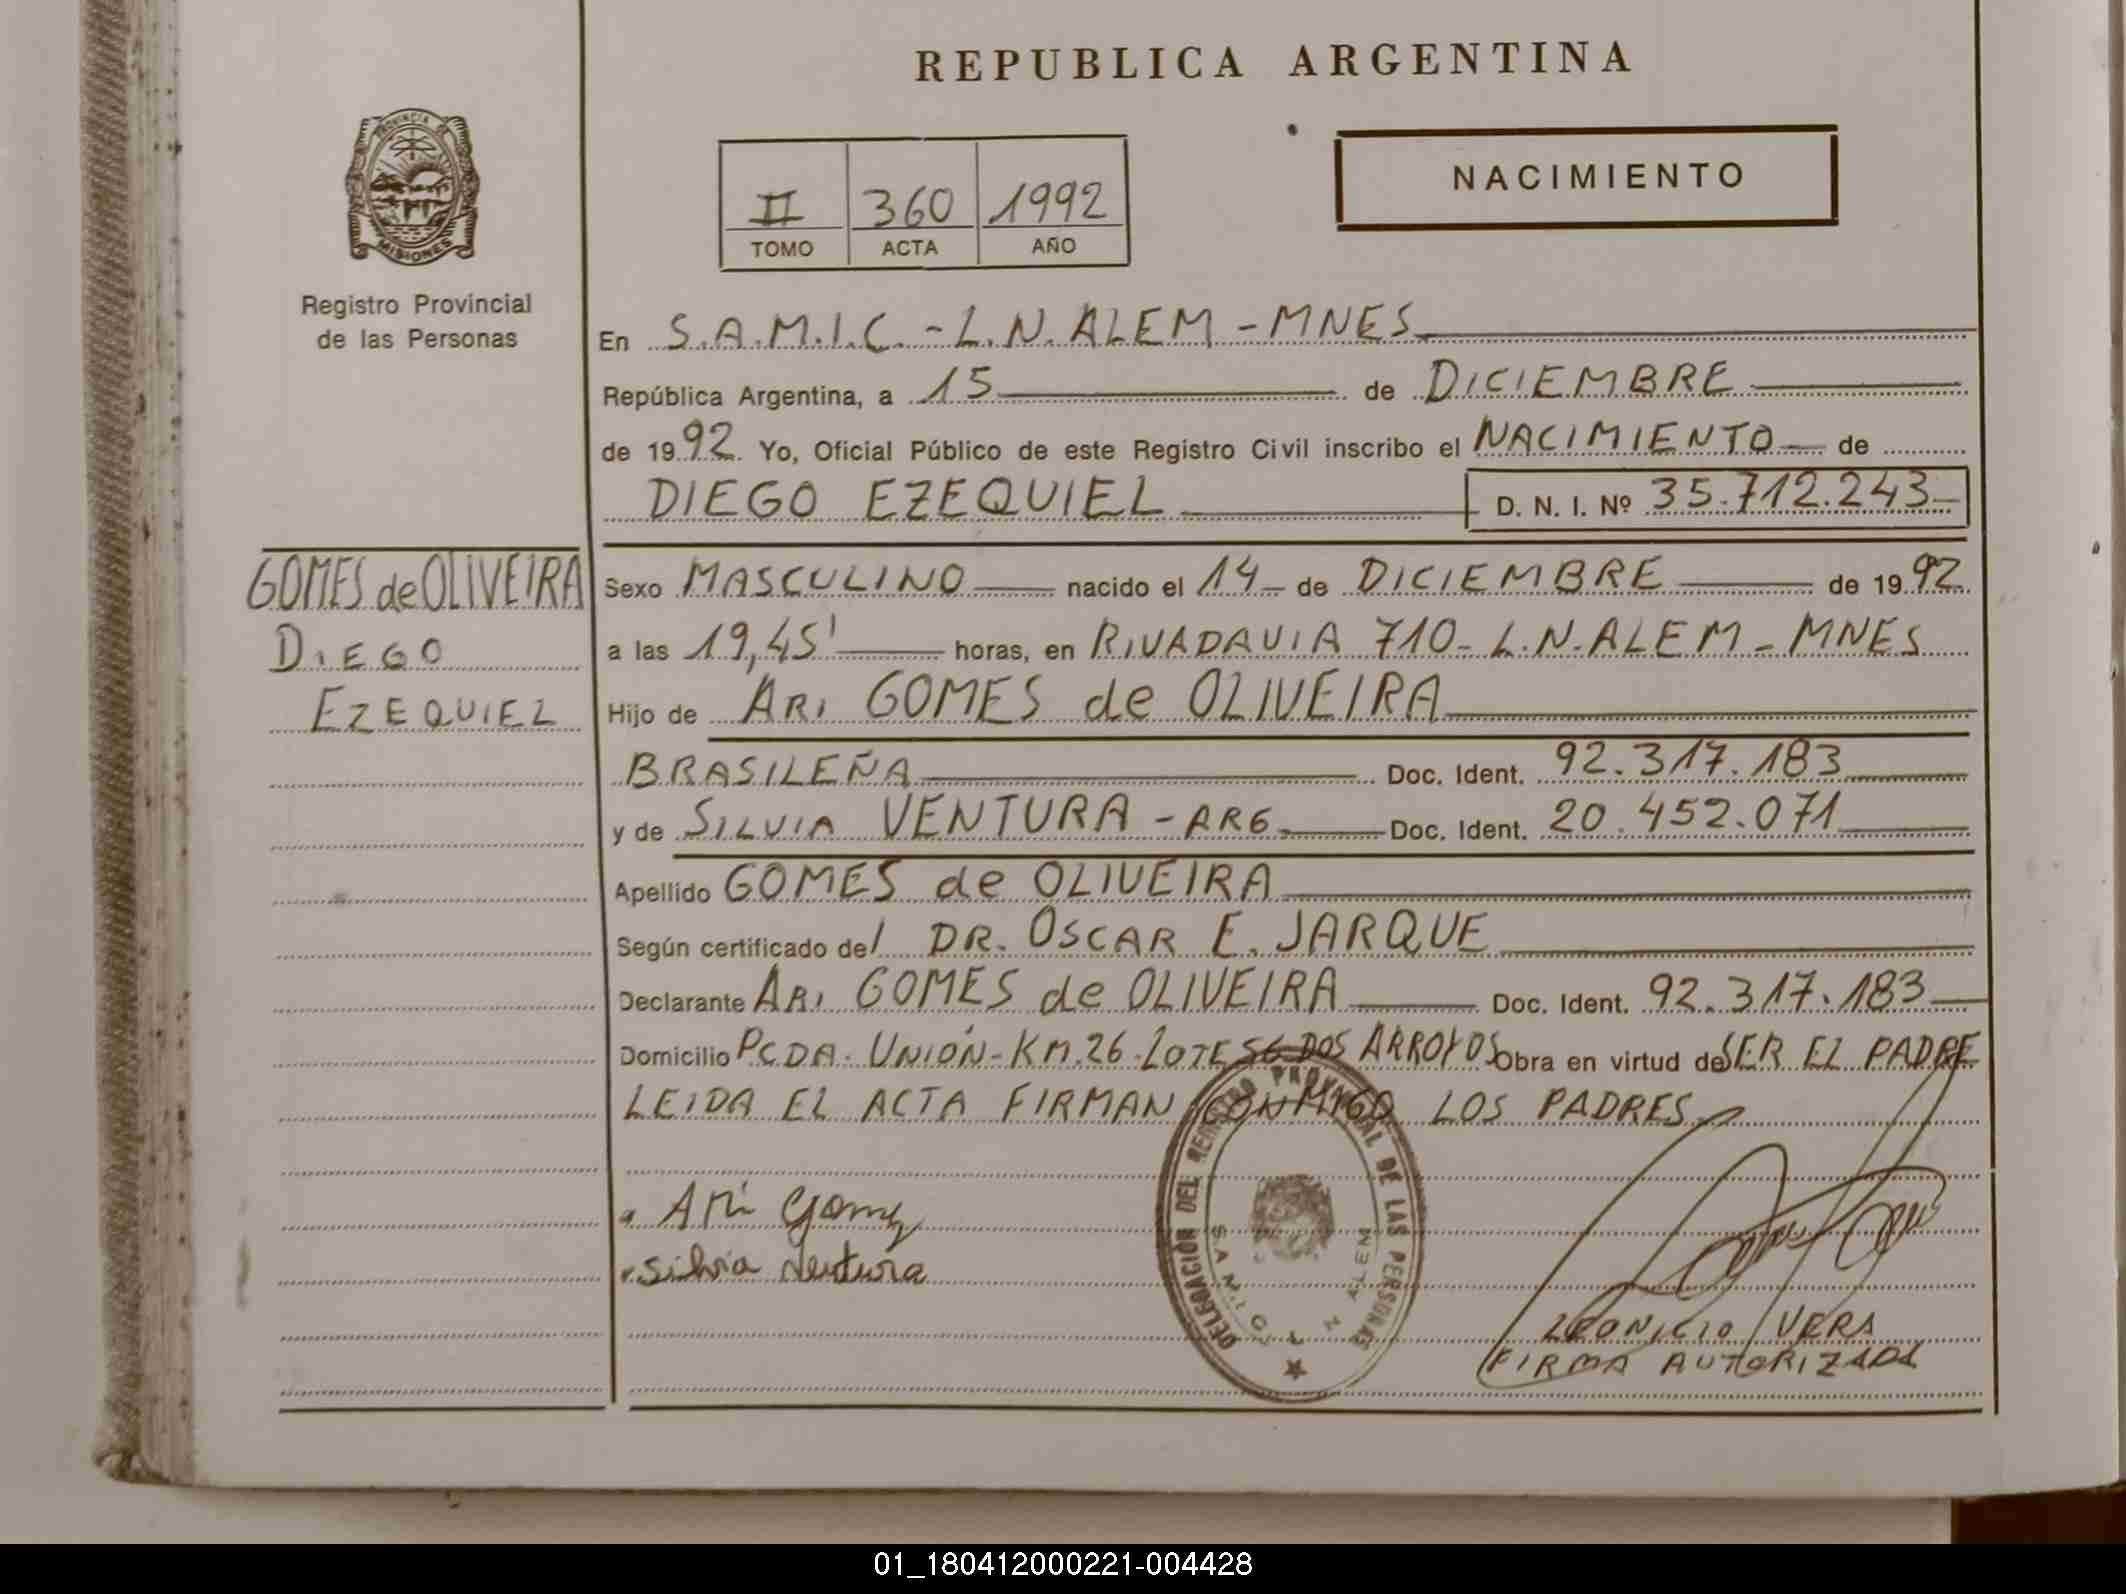 REPUBLICA ARGENTINA
PROVINCIA DE
MISIONES
Registro Provincial
de las Personas
II 360 1992
TOMO ACTA AÑO
NACIMIENTO
En S.A.M.I.C. - L.N. ALEM - MNES
República Argentina, a 15 de DICIEMBRE
de 1992. Yo, Oficial Público de este Registro Civil inscribo el NACIMIENTO de
DIEGO EZEQUIEL D. N. I. Nº 35.712.243
GOMES de OLIVEIRA
DIEGO
EZEQUIEL
Sexo MASCULINO nacido el 14 de DICIEMBRE de 1992
a las 19,45' horas, en RIVADAVIA 710 - L.N. ALEM - MNES
Hijo de ARI GOMES de OLIVEIRA
BRASILEÑA Doc. Ident. 92.317.183
y de SILVIA VENTURA - ARG. Doc. Ident. 20.452.071
Apellido GOMES de OLIVEIRA
Según certificado del DR. OSCAR E. JARQUE
Declarante ARI GOMES de OLIVEIRA Doc. Ident. 92.317.183
Domicilio PCDA. UNIÓN - KM.26 - LOTE 56 DOS ARROYOS Obra en virtud de SER EL PADRE
LEIDA EL ACTA FIRMAN CONMIGO LOS PADRES
Ari Gomes
Silvia Ventura
DELEGACION DEL REGISTRO PROVINCIAL DE LAS PERSONAS
LEONICIO VERA
FIRMA AUTORIZADA
01_180412000221-004428